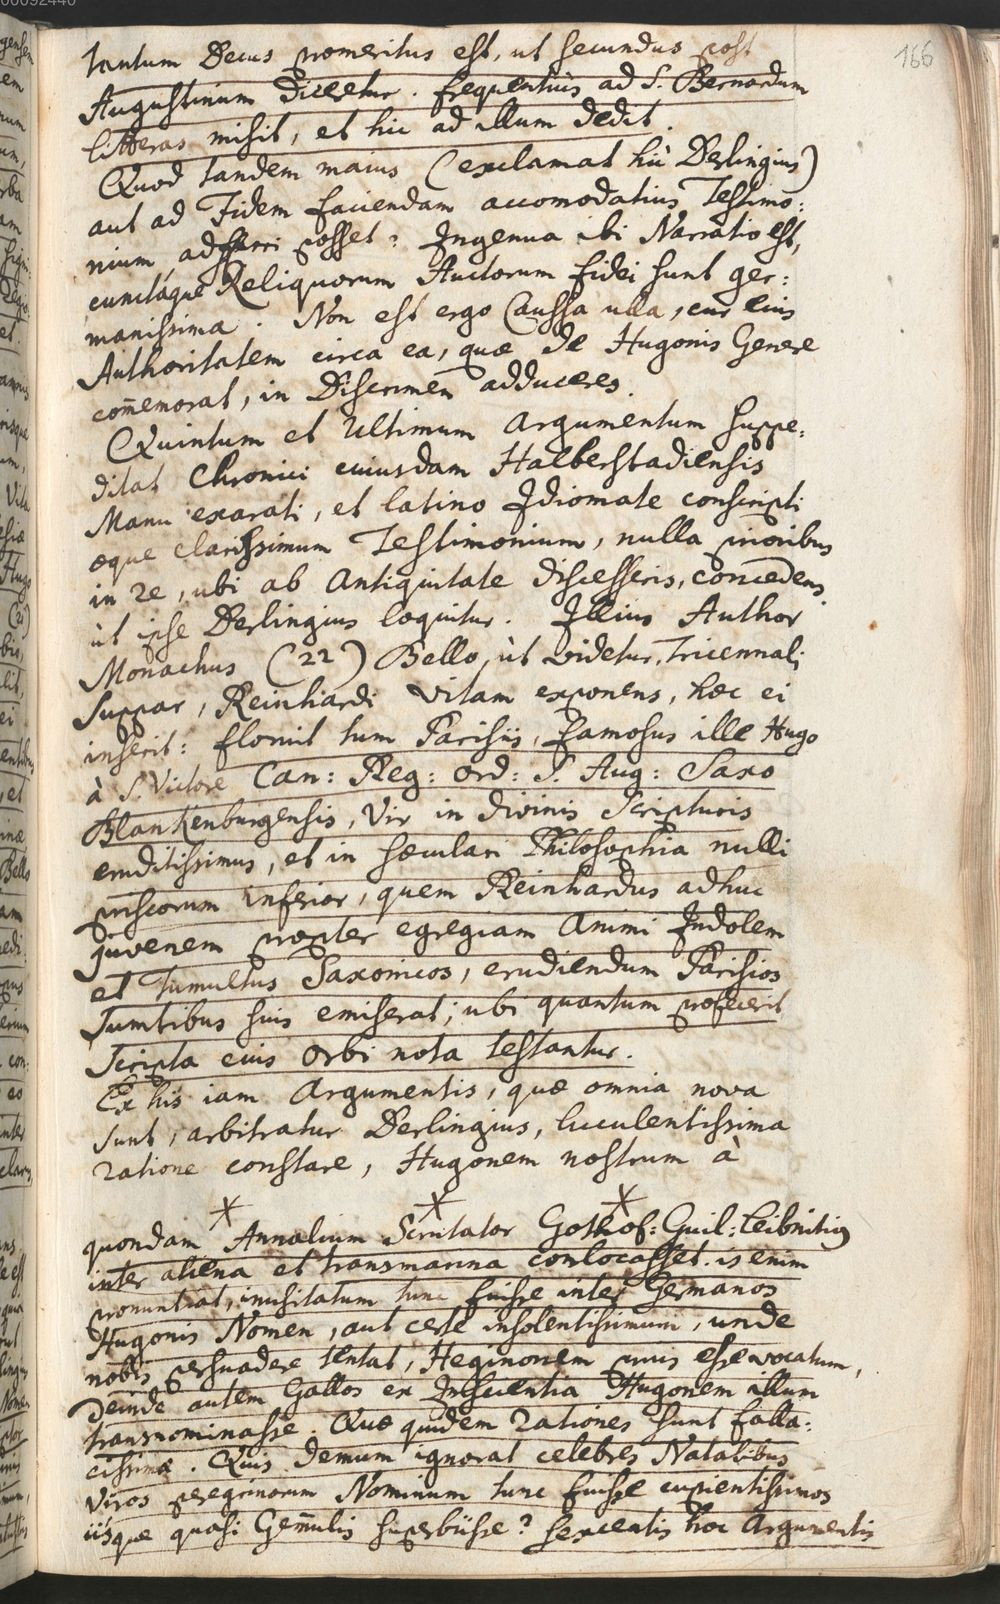 166
tantum Decus promeritus est, ut secundus post
Augustinum diceretur. frequentius ad S. Bernardum
litteras misit, et hic ad illum dedit.
Quod tandem maius (exclamat hic Derlingius)
aut ad Fidem faciendam accomodatius Testimo:
nium, adferri posset? Ingenua ibi Narratio est,
cunctaque Reliquorum Auctorum fidei sunt ger:
manissima. Non est ergo Caussa ulla, cur eius
Authoritatem circa ea, quæ de Hugonis Genere
com̄emorat, in Discrimen adduceres.
Quintum et Ultimum Argumentum suppe:
ditat Chronici cuiusdam Halberstadiensis
Manu exarati, et latino Idiomate conscripti
æque clarissimum Testimonium, nulla prioribus
in re, ubi ab Antiquitate discesseris, concedens,
ùt ipse Derlingius loquitur. Illius Author
Monachus (22) Bello, ùt videtur, Tricennali
Suppar, Reinhardi Vitam exponens, hæc ei
inserit: floruit tum Parisiis, famosus ille Hugo
à S. Victore Can: Reg: Ord: S. Aug: Saxo
Blankenburgensis, Vir in divinis Scripturis
eruditissimus, et in sæculari Philosophia nulli
priscorum inferior, quem Reinhardus adhuc
juvenem propter egregiam Animi Indolem
et Tumultus Saxonicos, erudiendum Parisios
Sumtibus suis emiserat; ubi quantum profecerit
Scripta eius Orbi nota testantur.
Ex his iam Argumentis, quæ omnia nova
sunt, arbitratur Derlingius, luculentissima
ratione constare, Hugonem nostrum à
* * *
quondam Annalium Scrutator Gothof: Guil: Leibnitius
inter aliena et transmarina conlocasset. is enim
pronuntiat, inusitatum tunc fuisse inter Germanos
Hugonis Nomen, aut certe insolentissimum, unde
nobis persuadere tentat, Heginonem prius esse vocatum,
Deinde autem Gallos ex Inscientia Hugonem illum
transnominasse. Quæ quidem rationes sunt falla:
cissimæ. Quis demum ignorat celebres Natalibus
Viros peregrinorum Nominum tunc fuisse cupientissimos
iisque quasi Gem̄ulis superbiisse? sexcentis hoc Argumentis